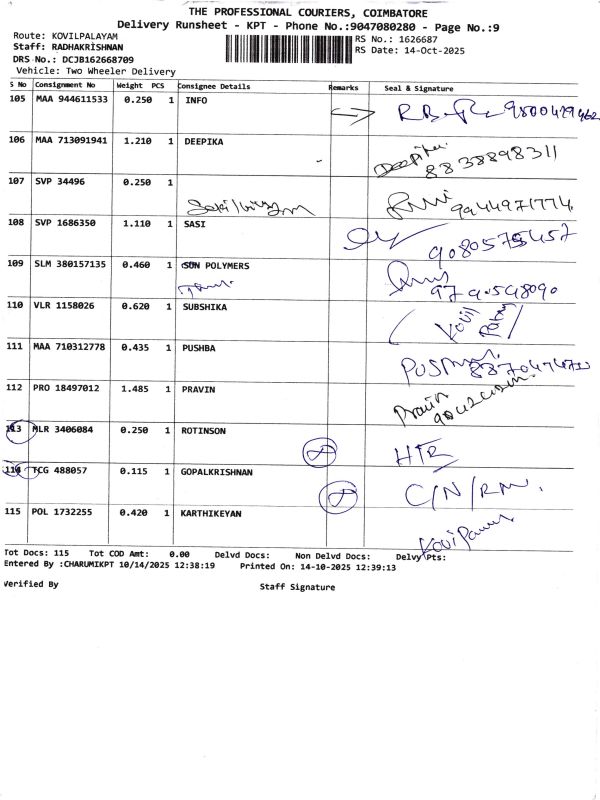 THE PROFESSIONAL COURIERS, COIMBATORE
Delivery Runsheet - KPT - Phone No.:9047080280 - Page No.:9
Route: KOVILPALAYAM
RS No.: 1626687
Staff: RADHAKRISHNAN
RS Date: 14-Oct-2025
DRS No.: DCJB162668709
Vehicle: Two Wheeler Delivery
S No Consignment No Weight PCS Consignee Details Remarks Seal & Signature
105 MAA 944611533 0.250 1 INFO
106 MAA 713091941 1.210 1 DEEPIKA Deepika
8838898311
107 SVP 34496 0.250 1
9944971774
108 SVP 1686350 1.110 1 SASI
9080575457
109 SLM 380157135 0.460 1 SUN POLYMERS
110 VLR 1158026 0.620 1 SUBSHIKA Kovil
111 MAA 710312778 0.435 1 PUSHBA
112 PRO 18497012 1.485 1 PRAVIN Pravin
113 MLR 3406084 0.250 1 ROTINSON
114 TCG 488057 0.115 1 GOPALKRISHNAN C/N/RM
115 POL 1732255 0.420 1 KARTHIKEYAN
Tot Docs: 115 Tot COD Amt: 0.00 Delvd Docs: Non Delvd Docs: Delvy Pts:
Entered By :CHARUMIKPT 10/14/2025 12:38:19 Printed On: 14-10-2025 12:39:13
Verified By Staff Signature